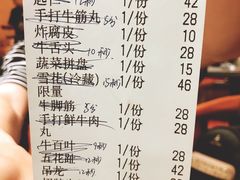 1/份 42
手打牛筋丸 1/份 28
炸腐皮 1/份 10
牛舌头 1/份 28
蔬菜拼盘 1/份 15
雪花(冷藏) 1/份 46
限量
牛脚筋 1/份 28
手打鲜牛肉 1/份 28
丸
牛百叶 9秒 1/份 28
五花趾 12秒 1/份 42
吊龙 1/份